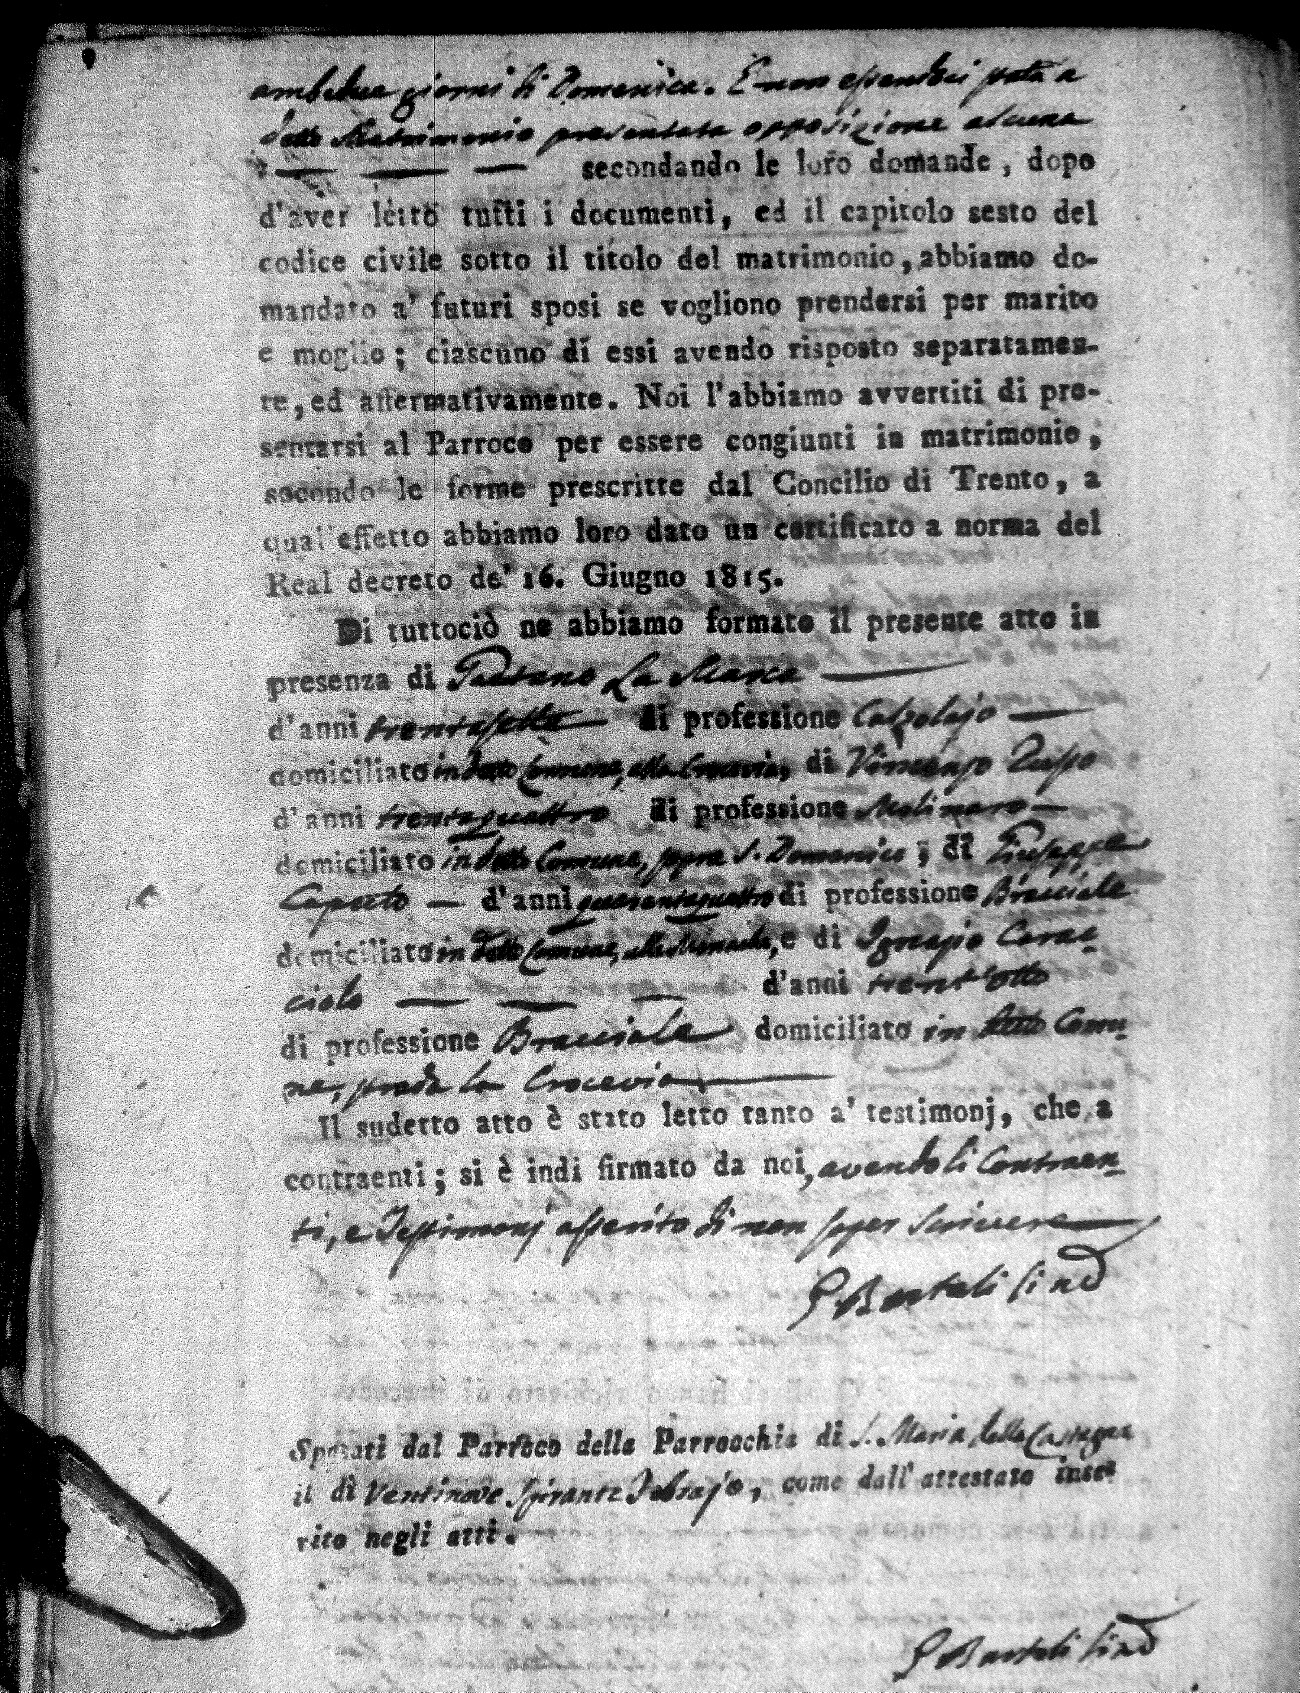 ambedue giorni di Domenica. E non essendoci stata a
detto Matrimonio presentata opposizione alcuna
secondando le loro domande, dopo
d'aver letto tutti i documenti, ed il capitolo sesto del
codice civile sotto il titolo del matrimonio, abbiamo do-
mandato a' futuri sposi se vogliono prendersi per marito
e moglie; ciascuno di essi avendo risposto separatamen-
te, ed affermativamente. Noi l'abbiamo avvertiti di pre-
sentarsi al Parroco per essere congiunti in matrimonio,
secondo le forme prescritte dal Concilio di Trento, a
qual' effetto abbiamo loro dato un certificato a norma del
Real decreto de' 16. Giugno 1815.
Di tuttociò ne abbiamo formato il presente atto in
presenza di Gaetano La Marca
d'anni trentasette di professione Calzolajo
domiciliato in detto Comune, alla Crocevia, di Vincenzo
d'anni trentaquattro di professione Molinaro
domiciliato in detto Comune, sopra S. Domenico; di Giuseppe
Caputo — d'anni quarantaquattro di professione Bracciale
domiciliato in detto Comune, e di Ignazio Carac-
ciolo d'anni trent'otto
di professione Bracciale domiciliato in detto Comu-
ne, strada la Crocevia
Il sudetto atto è stato letto tanto a' testimonj, che a
contraenti; si è indi firmato da noi, avendo li Contraen-
ti, e Testimonj asserito di non saper scrivere
G Bartoli Sind
Sposati dal Parroco della Parrocchia di S. Maria della
il dì Ventinove Spirante Febrajo, come dall' attestato inse-
rito negli atti.
G Bartoli Sind